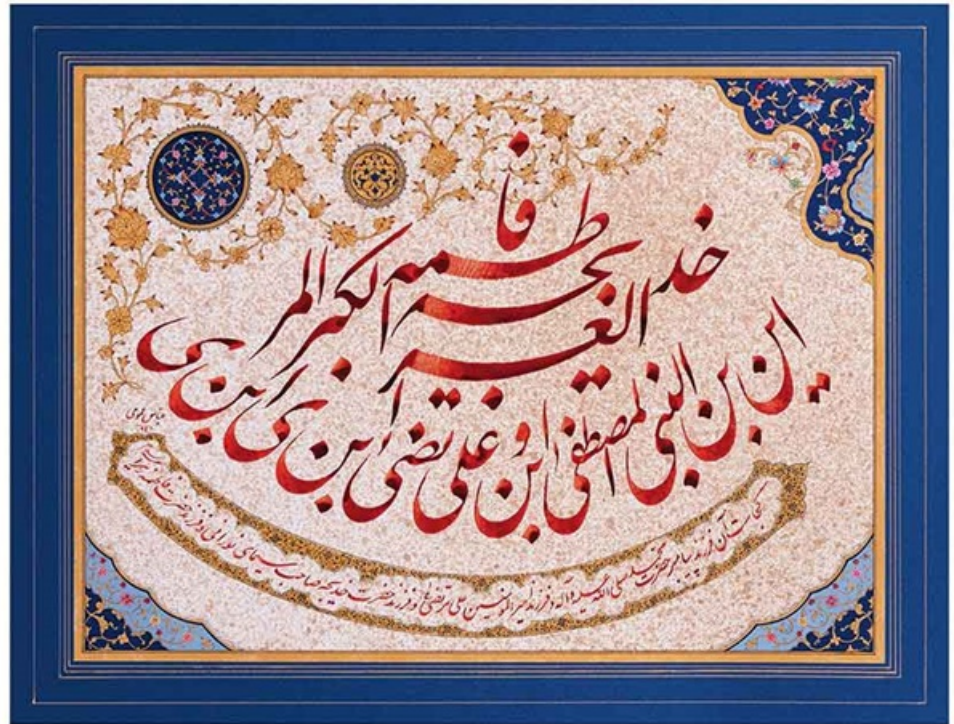 این ابن النبی المصطفی و ابن علی المرتضی و ابن خدیجة الغراء و ابن فاطمة الکبری
کجاست آن فرزند پیامبر حضرت محمد صلی الله علیه و آله و فرزند امیرالمؤمنین علی مرتضی و فرزند حضرت خدیجه صاحب سیمای نورانی و فرزند حضرت فاطمه